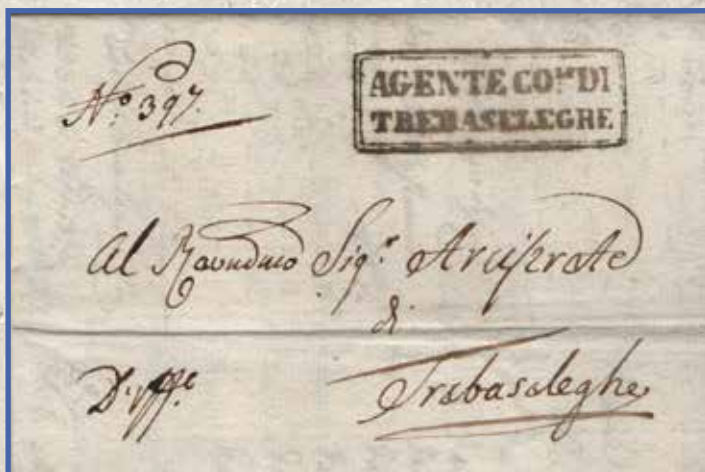 N.º 397.
AGENTE COM. DI
TREBASELEGHE
Al Sig.r Arciprete
di
Trebaseleghe
D'Uff.e